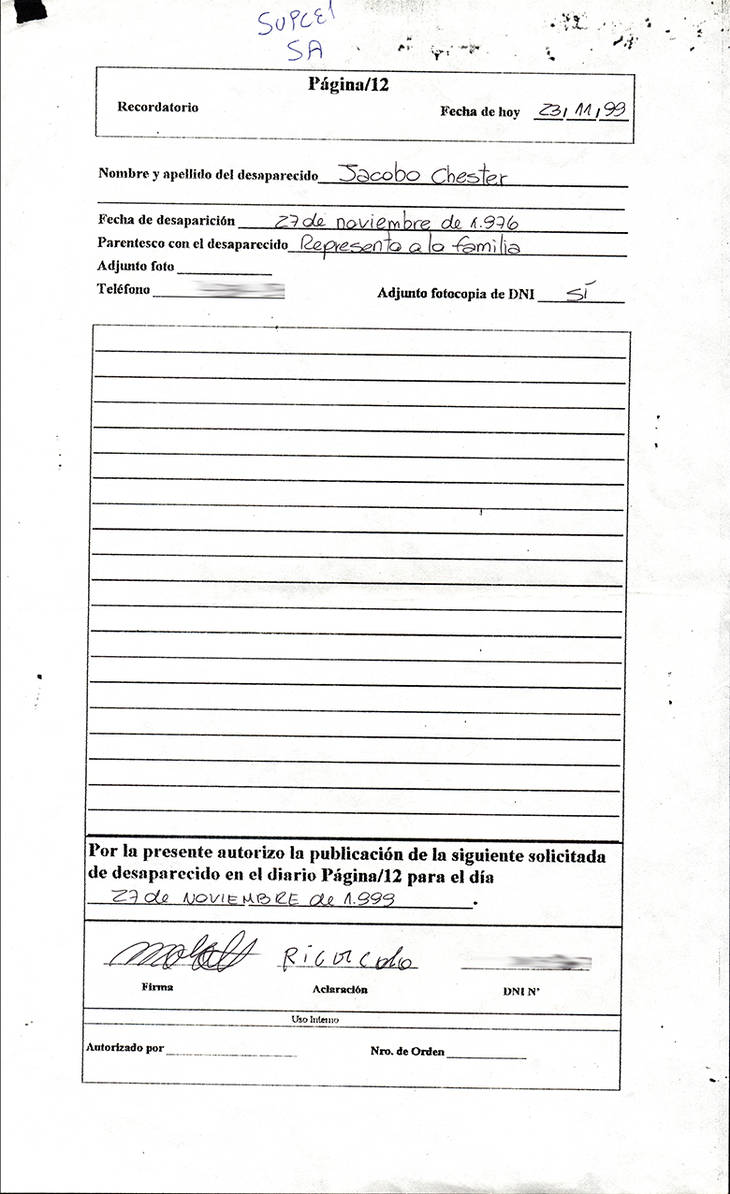 SUPCE1
SA
Página/12
Recordatorio Fecha de hoy 23/11/99
Nombre y apellido del desaparecido Jacobo Chester
Fecha de desaparición 27 de noviembre de 1.976
Parentesco con el desaparecido Represento a la familia
Adjunto foto
Teléfono Adjunto fotocopia de DNI SÍ
Por la presente autorizo la publicación de la siguiente solicitada
de desaparecido en el diario Página/12 para el día
27 de NOVIEMBRE de 1.999.
Firma Aclaración DNI Nº
Uso Interno
Autorizado por Nro. de Orden